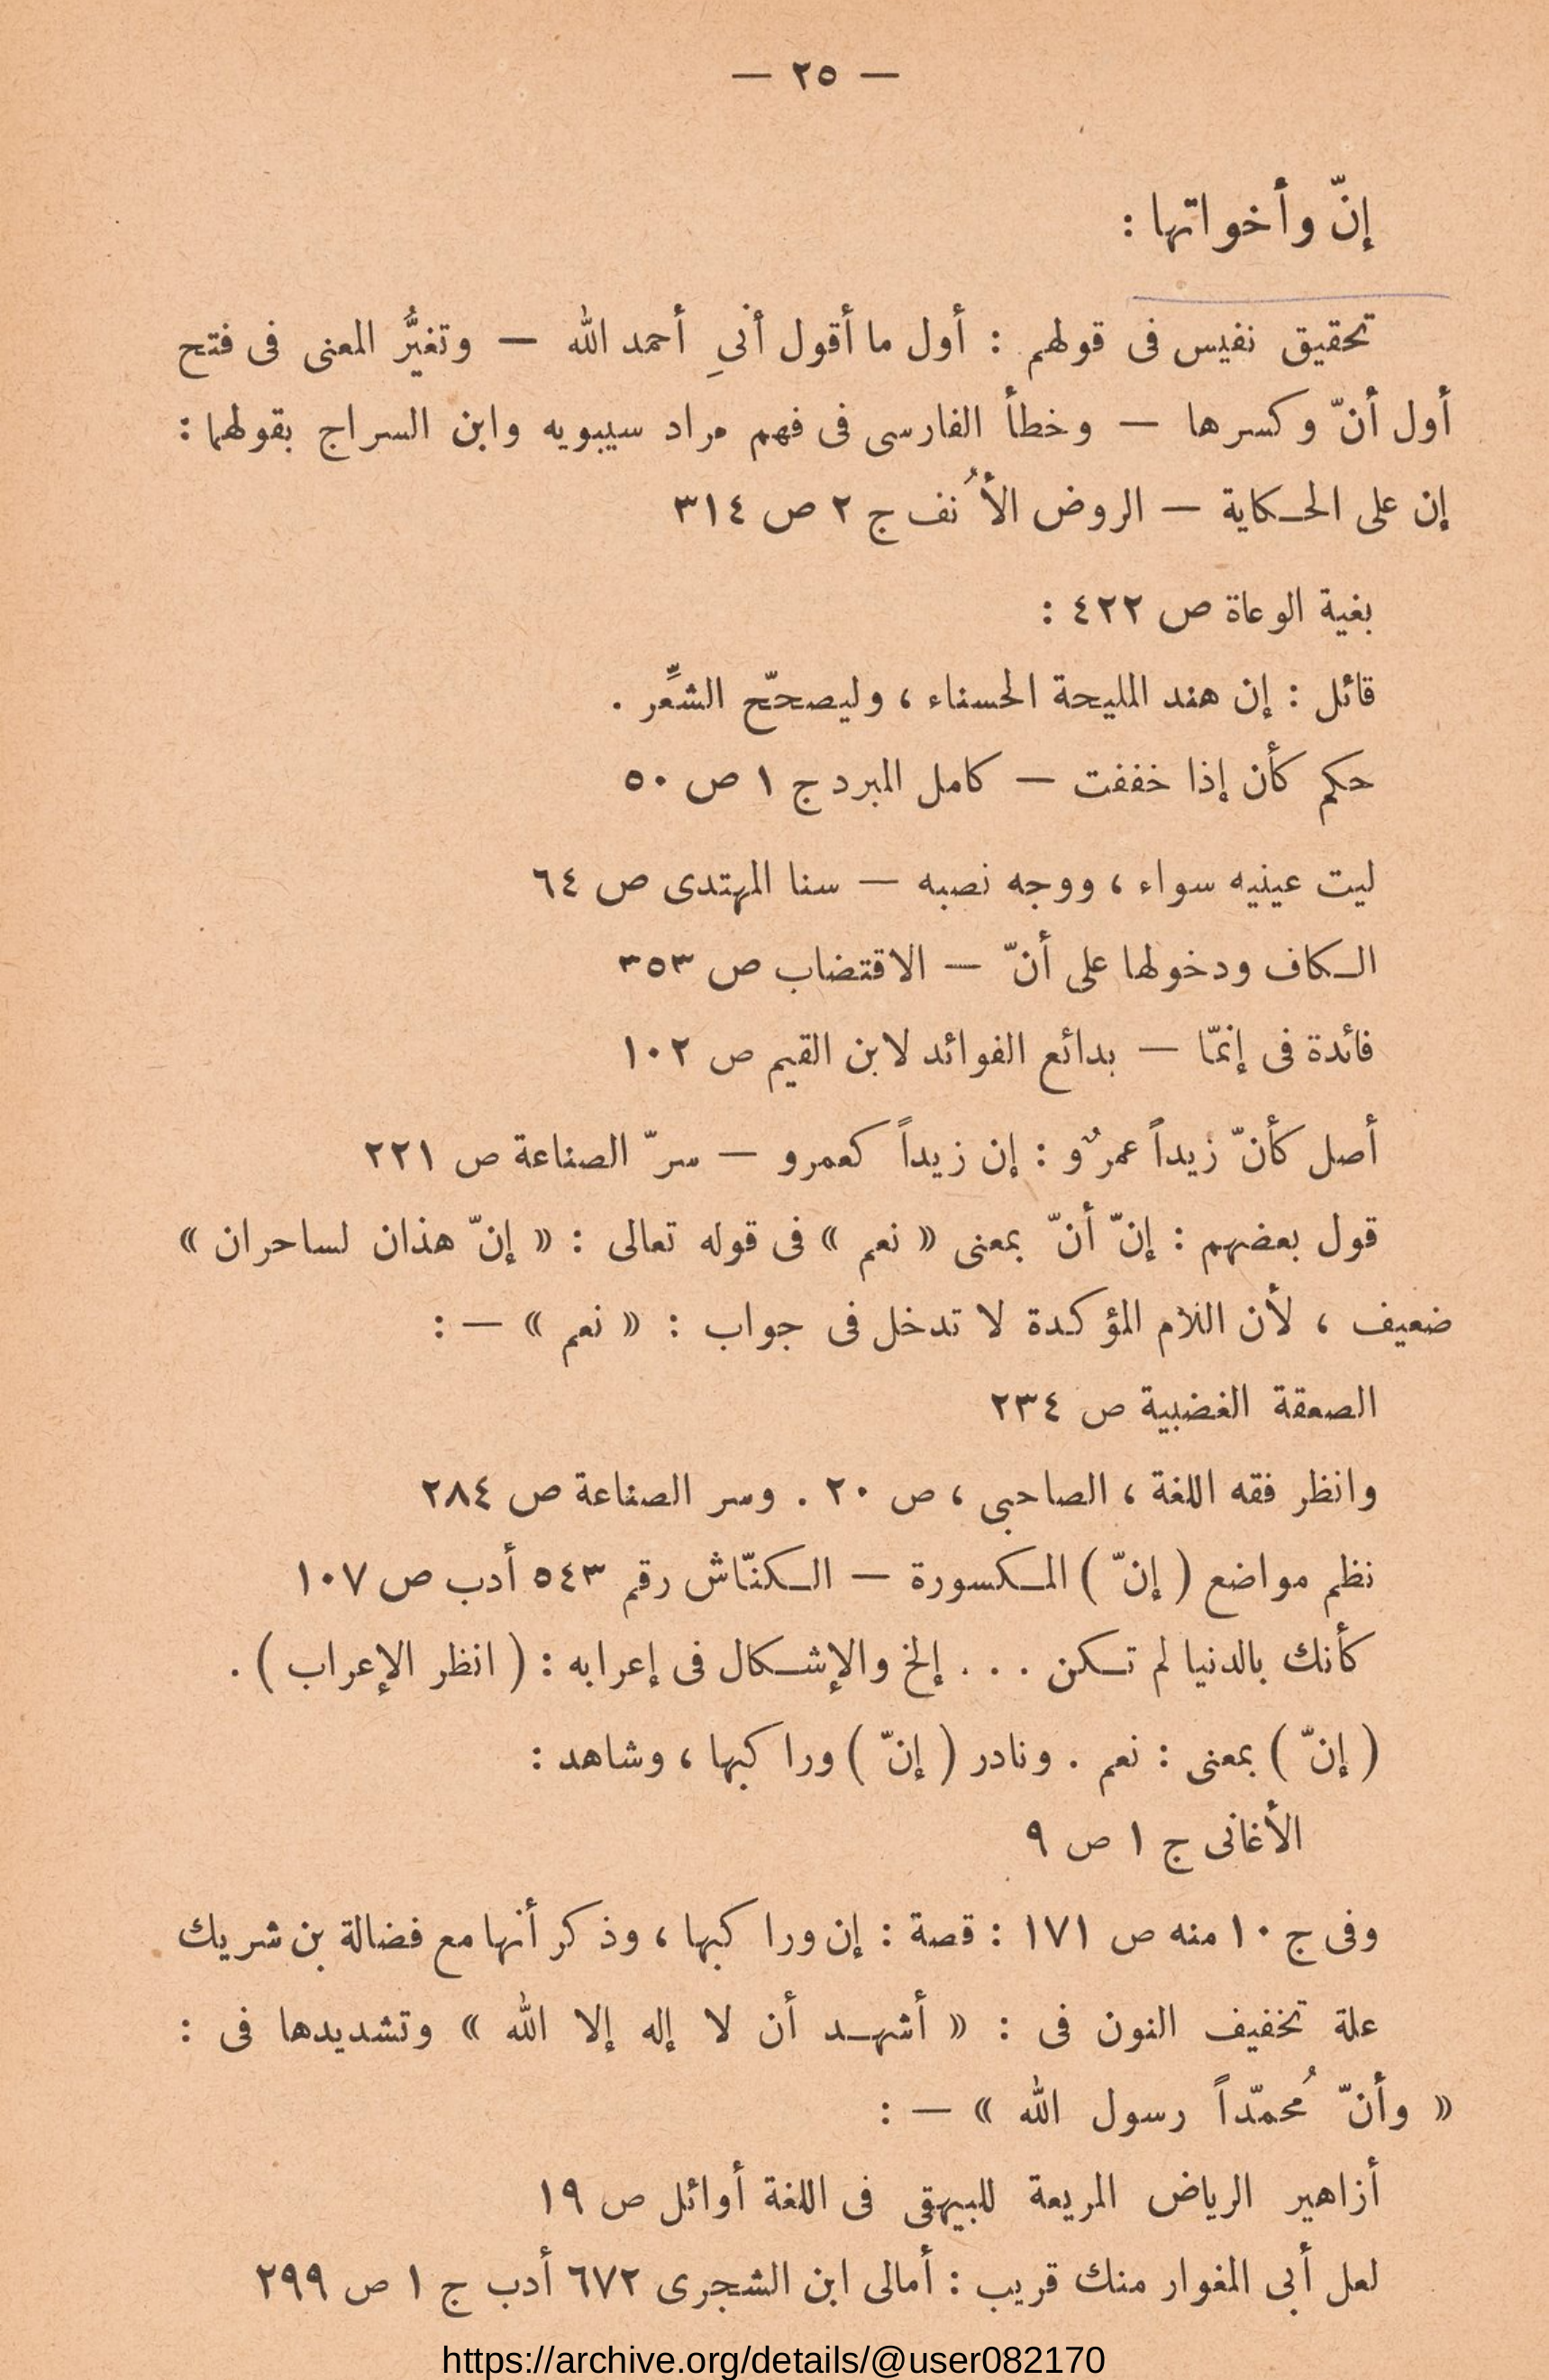 — ٢٥ —
إنّ وأخواتها :
تحقيق نفيس فى قولهم : أول ما أقول أنىِ أحمد الله — وتغيُّر المعنى فى فتح
أول أنّ وكسرها — وخطأ الفارسى فى فهم مراد سيبويه وابن السراج بقولهما :
إن على الحكاية — الروض الأُنف ج ٢ ص ٣١٤
بغية الوعاة ص ٤٢٢ :
قائل : إن هند المليحة الحسناء ، وليصحّح الشعِّر .
حكم كأن إذا خففت — كامل المبرد ج ١ ص ٥٠
ليت عينيه سواء ، ووجه نصبه — سنا المهتدى ص ٦٤
الكاف ودخولها على أنّ — الاقتضاب ص ٣٥٣
فائدة فى إنمّا — بدائع الفوائد لابن القيم ص ١٠٢
أصل كأنّ زيداً عمرٌو : إن زيداً كعمرو — سرّ الصناعة ص ٢٢١
قول بعضهم : إنّ أنّ بمعنى « نعم » فى قوله تعالى : « إنّ هذان لساحران »
ضعيف ، لأن اللام المؤكدة لا تدخل فى جواب : « نعم » — :
الصعقة الغضبية ص ٢٣٤
وانظر فقه اللغة ، الصاحبى ، ص ٢٠ . وسر الصناعة ص ٢٨٤
نظم مواضع ( إنّ ) المكسورة — الكنّاش رقم ٥٤٣ أدب ص ١٠٧
كأنك بالدنيا لم تكن . . . إلخ والإشكال فى إعرابه : ( انظر الإعراب ) .
( إنّ ) بمعنى : نعم . ونادر ( إنّ ) وراكبها ، وشاهد :
الأغانى ج ١ ص ٩
وفى ج ١٠ منه ص ١٧١ : قصة : إن وراكبها ، وذكر أنها مع فضالة بن شريك
علة تخفيف النون فى : « أشهد أن لا إله إلا الله » وتشديدها فى :
« وأنّ مُحمّداً رسول الله » — :
أزاهير الرياض المريعة للبيهقى فى اللغة أوائل ص ١٩
لعل أبى المغوار منك قريب : أمالى ابن الشجرى ٦٧٢ أدب ج ١ ص ٢٩٩
https://archive.org/details/@user082170